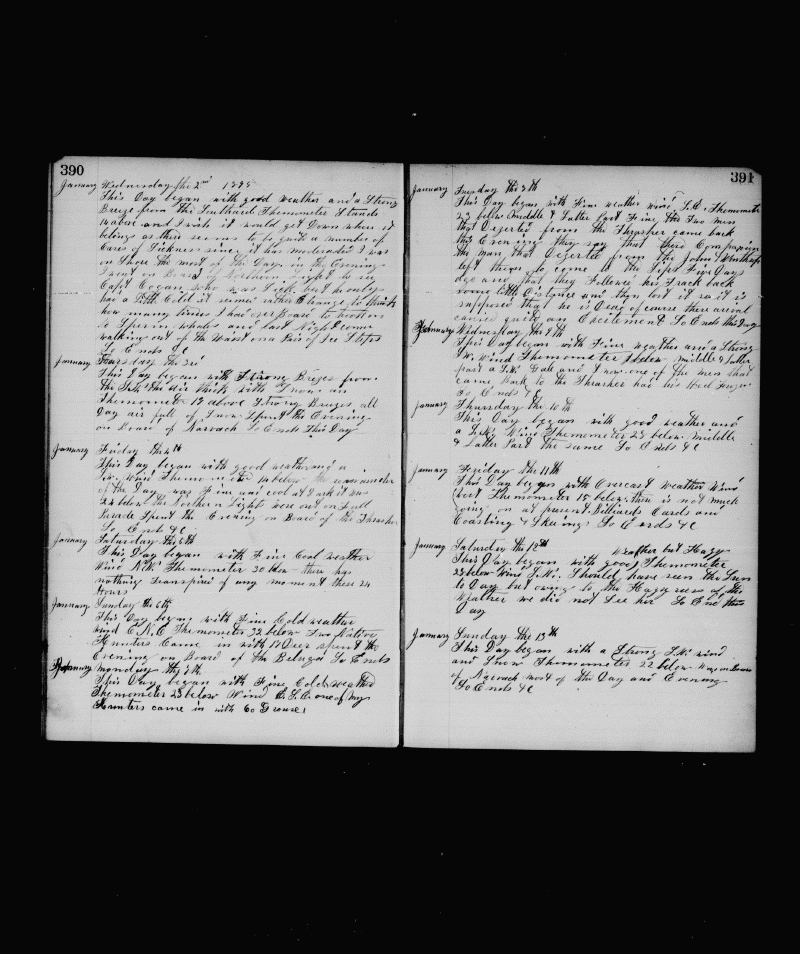 390
January Wednesday the 2nd 1895
This Day began with good weather and a Strong
Breeze from the Southard Themometer Stands
and I wish it would get Down where it
belongs as there seems to be quite a number of
Cases of Sickness since it has moderated I was
on Shore the most of the Day in the Evening
I went on Board of Northern Light to see
Capt Cogan who was Sick but he only
has a little Cold it seems rather Strange to think
how many times I had over Board to
a Sperm whale and last Night come
walking out of the Waist on a pair of Ice Steps
So Ends &c
January Thursday the 3rd
This Day began with Strong Breges from
the the air thick with Snow an
Themometer 12 above Strong Breezes all
Day air full of Snow Spent the Evening
on Board of Narvach So Ends This Day
January Friday the 4th
This Day began with good weather and a
S.W. Wind Themometer 14 below the
of the Day was Fine and cool at Dark it was
22 below the Northern Light were out on Full
Parade Spent the Evening on Board of the Thrasher
So Ends &c
January Saturday the 5th
This Day began with Fine Cool weather
Wind N.W. Themometer 30 below there has
nothing transpired of any moment these 24
Hours
January Sunday the 6th
This Day began with Fine Cold weather
wind E.N.E Themometer 32 below Two Native
Hunters Came in with 17 Deer spent the
Evening on Board of the Beluga So Ends
January Monday the 7th
This Day began with Fine Cold weather
Themometer 23 below Wind E.S.E one of my
Hunters came in with 60 Grouse
391
January Tuesday the 8th
This Day began with Fine weather wind S.E. Themometer
23 below Middle & Latter Part Fine the Two men
that Deserted from the Thrasher came back
this Evening they say that there Companion
the man that Deserted from the John Winthrop
left them to come to the Ships Five Days
ago and that they Followed his Track back
some little Distance and then lost it so it is
supposed that he is Dead of course there arrival
caused quite an Excitement So Ends this Day
January Wednesday the 9th
This Day began with Fine weather and a Strong
S.W. wind Themometer below middle & latter
part a S.W. Gale and one of the men that
came back to the Thrasher had his
So Ends &c
January Thursday the 10th
This Day began with good weather and
a S.W. Wind Themometer 28 below Middle
& Latter Part the same So Ends &c
January Friday the 11th
This Day began with Overcast weather Wind
West Themometer 15 below there is not much
going on at present Billiards Cards and
Coasting & Skeeing So Ends &c
January Saturday the 12th weather but Hazy
This Day began with good Themometer
28 below Wind S.W. Should have seen the Sun
to Day but owing to the Hazyness of the
Weather we did not See her So Ends this
Day
January Sunday the 13th
This Day began with a Strong S.W. wind
and Snow Themometer 22 below Was on Board
of Narvach most of the Day and Evening
So Ends &c